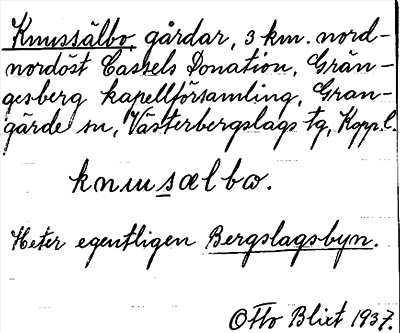 Knussälbo, gårdar, 3 km. nord-
nordöst Cassels Donation, Grän-
gesberg kapellförsamling, Gran-
gärde sn, Västerbergslags tg, Kopp.l.
knusælbo.
Heter egentligen Bergslagsbyn.
Otto Blixt 1937.